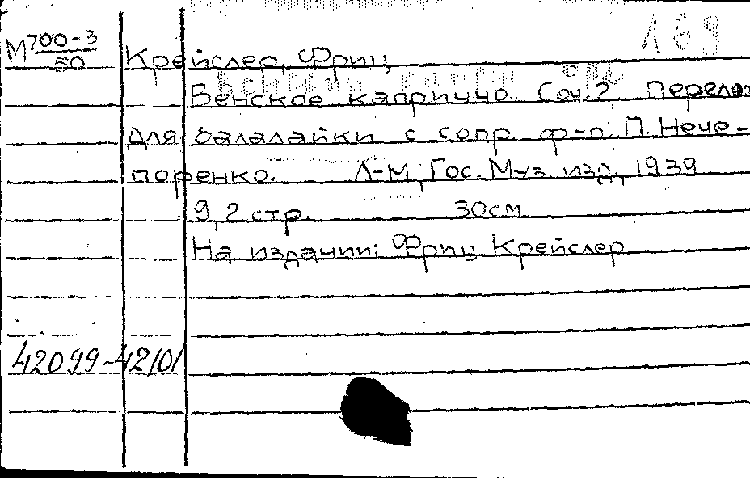 169
М 700-3/50 Крейслер, Фриц
Венское каприччо. Соч. 2. Перелож.
для балалайки с сопр. ф-п. П. Нече-
поренко. Л-М, Гос. Муз. изд, 1939
9, 2 стр. 30см
На издании: Фриц Крейслер
42099-42101